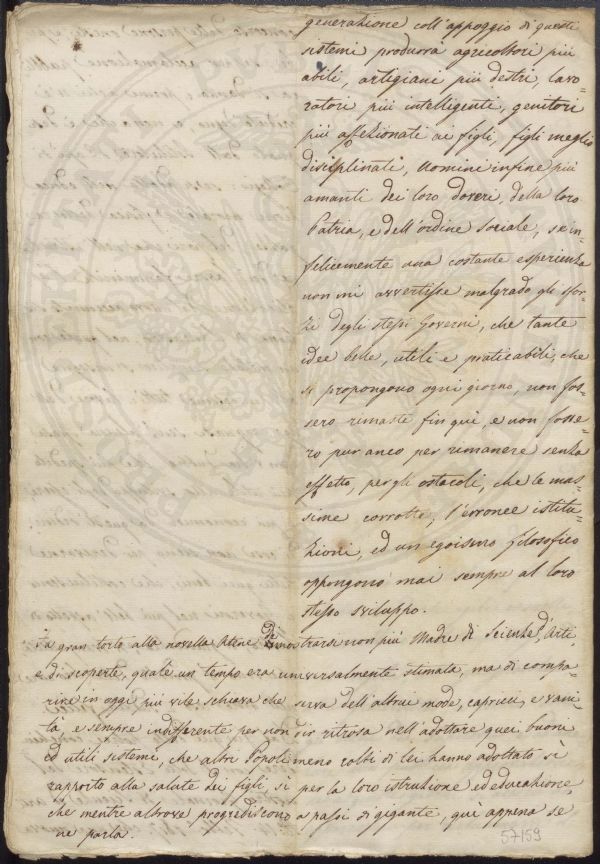 generazione coll'appoggio di questi
sistemi produrrà agricoltori più
abili, artigiani più destri, lavo-
ratori più intelligenti, genitori
più affezionati ai figli, figli meglio
disciplinati, uomini infine più
amanti dei loro doveri, della loro
Patria, e dell'ordine sociale, se in-
felicemente una costante esperienza
non mi avvertisse malgrado gli sfor-
zi degli stessi Governi, che tante
idee belle, utili e praticabili, che
si propongono ogni giorno, non fos-
sero rimaste fin quì, e non fosse-
ro pur anco per rimanere senza
effetto, per gli ostacoli, che le mas-
sime corrotte, l'erronee istitu-
zioni, ed un egoismo filosofico
oppongono mai sempre al loro
stesso sviluppo.
Fa gran torto alla novella Atene dimostrarsi non più Madre di Scienze, d'Arti,
e di scoperte, quale un tempo era universalmente stimata, ma di compa-
rire in oggi più vile schiava che serva dell'altrui mode, capricci, e vani-
tà e sempre indifferente per non dir ritrosa nell'adottare quei buoni
ed utili sistemi, che altri Popoli meno colti di lei hanno adottato sì
rapporto alla salute dei figli, sì per la loro istruzione ed educazione,
che mentre altrove progrediscono a passi di gigante, quì appena se
ne parla.
57/159